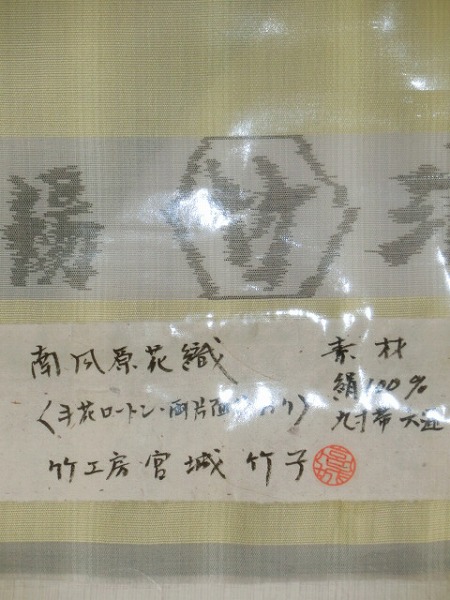 竹
南风原花織
〈手花ロートン・両片面
竹工房・宮城 竹子
素材
絹100%
九寸帯 六通